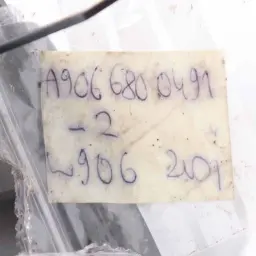 A906 680 0491
-2
W906 2009